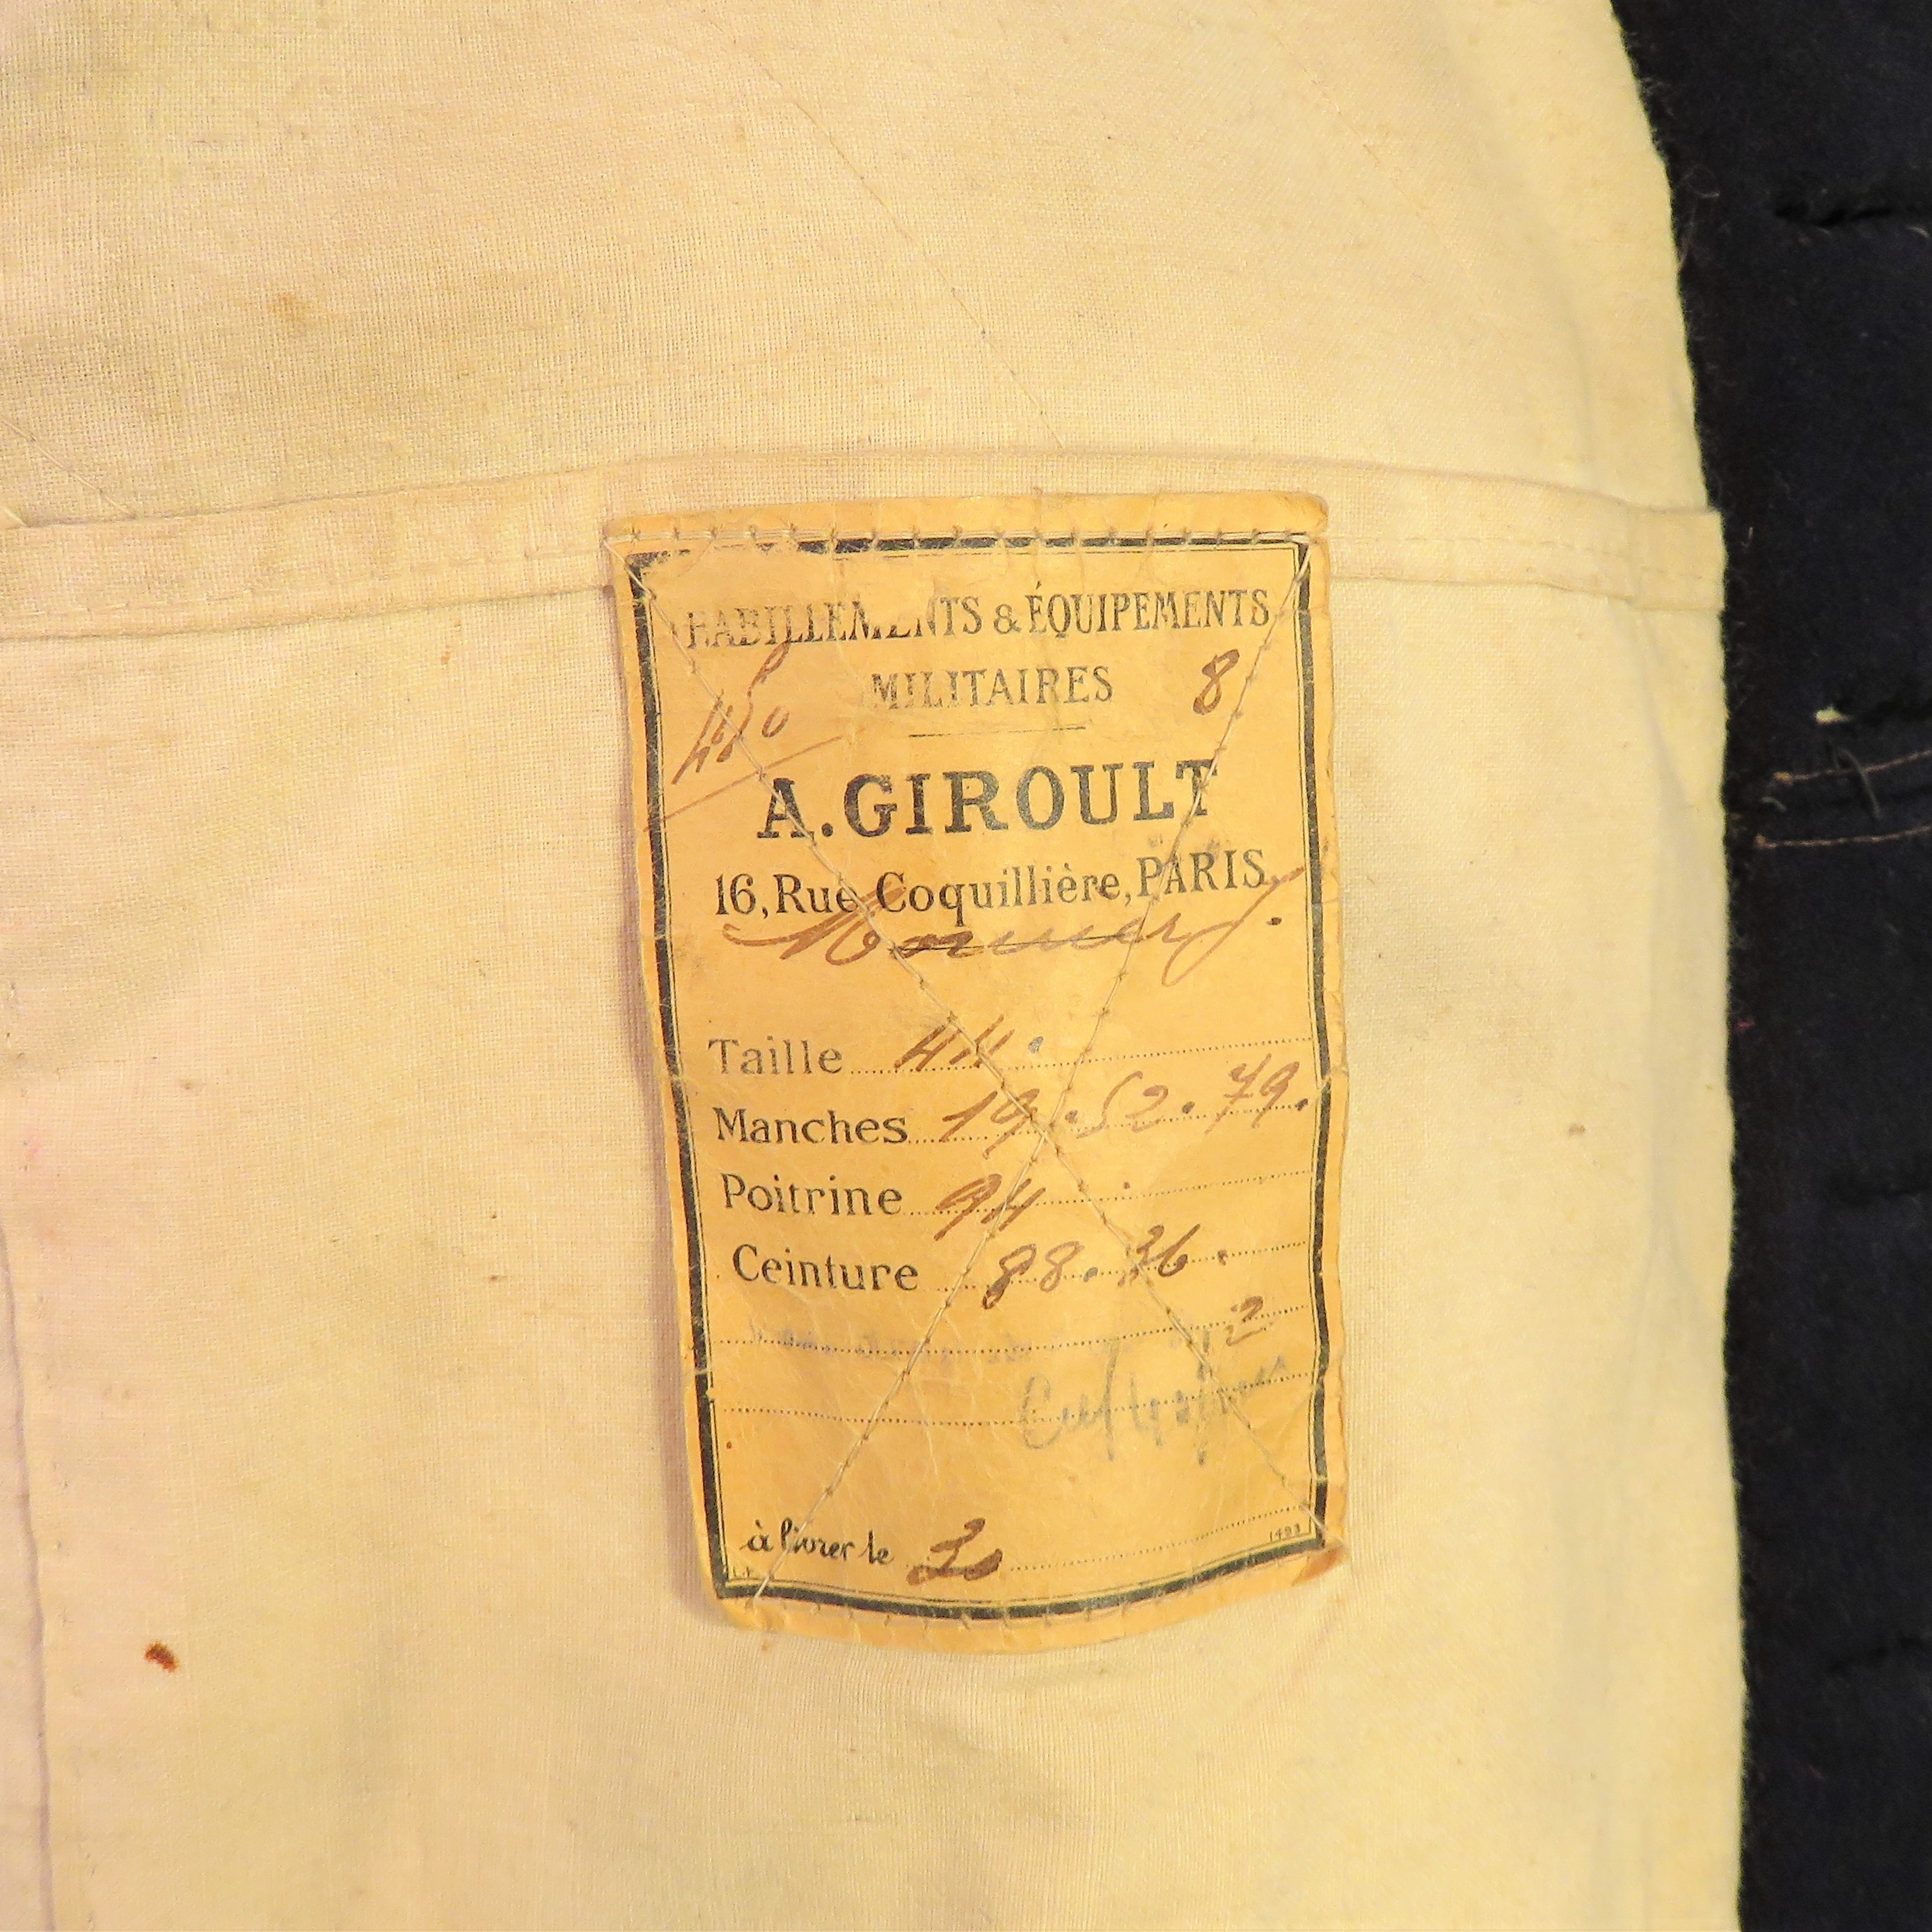 HABILLEMENTS & ÉQUIPEMENTS
MILITAIRES 8
450
A. GIROULT
16, Rue Coquillière, PARIS
Taille 44.
Manches 19. 52. 79.
Poitrine 94
Ceinture 88. 36.
2
à livrer le
1493